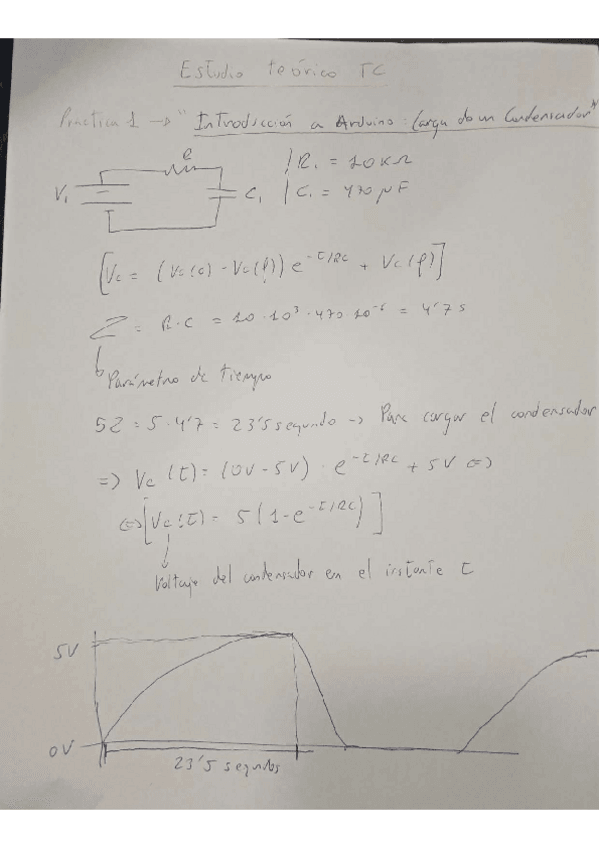 Estudio teórico TC
Práctica 1 → "Introducción a Arduino: Carga de un Condensador"
R
V₁
C₁
R₁ = 10 KΩ
C₁ = 470 μF
[Vc = (Vc(c) - Vc(f)) e^(-t/RC) + Vc(f)]
Z = R·C = 10·10³·470 10⁻⁶ = 4'7 s
Parámetro de tiempo
5Z = 5·4'7 = 23'5 segundo → Para cargar el condensador
=> Vc (t) = (0V - 5V) · e^(-t/RC) + 5V <=>
<=> [Vc(t) = 5(1-e^(-t/RC))]
Voltaje del condensador en el instante t
5V
0V
23'5 segundos